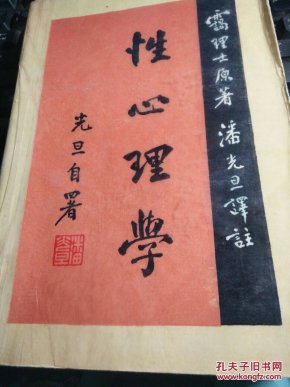 靄理士原著 潘光旦譯註
性心理學
光旦自署
潘光旦
孔夫子旧书网